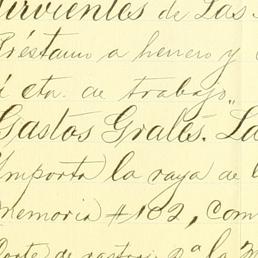 Sirvientes de Las
Préstamo a henero y
á cta. de trabajo„
Gastos Grales. La
Importa la raya de l
Memoria #102, Com
Corte de pa la M